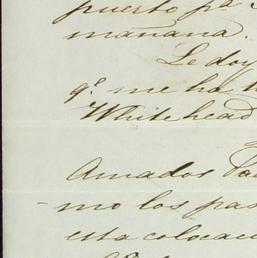 puerto pa
mañana.
Le doy
qe. me ha
Whitehead
Amados
mo los pas
esta colocac